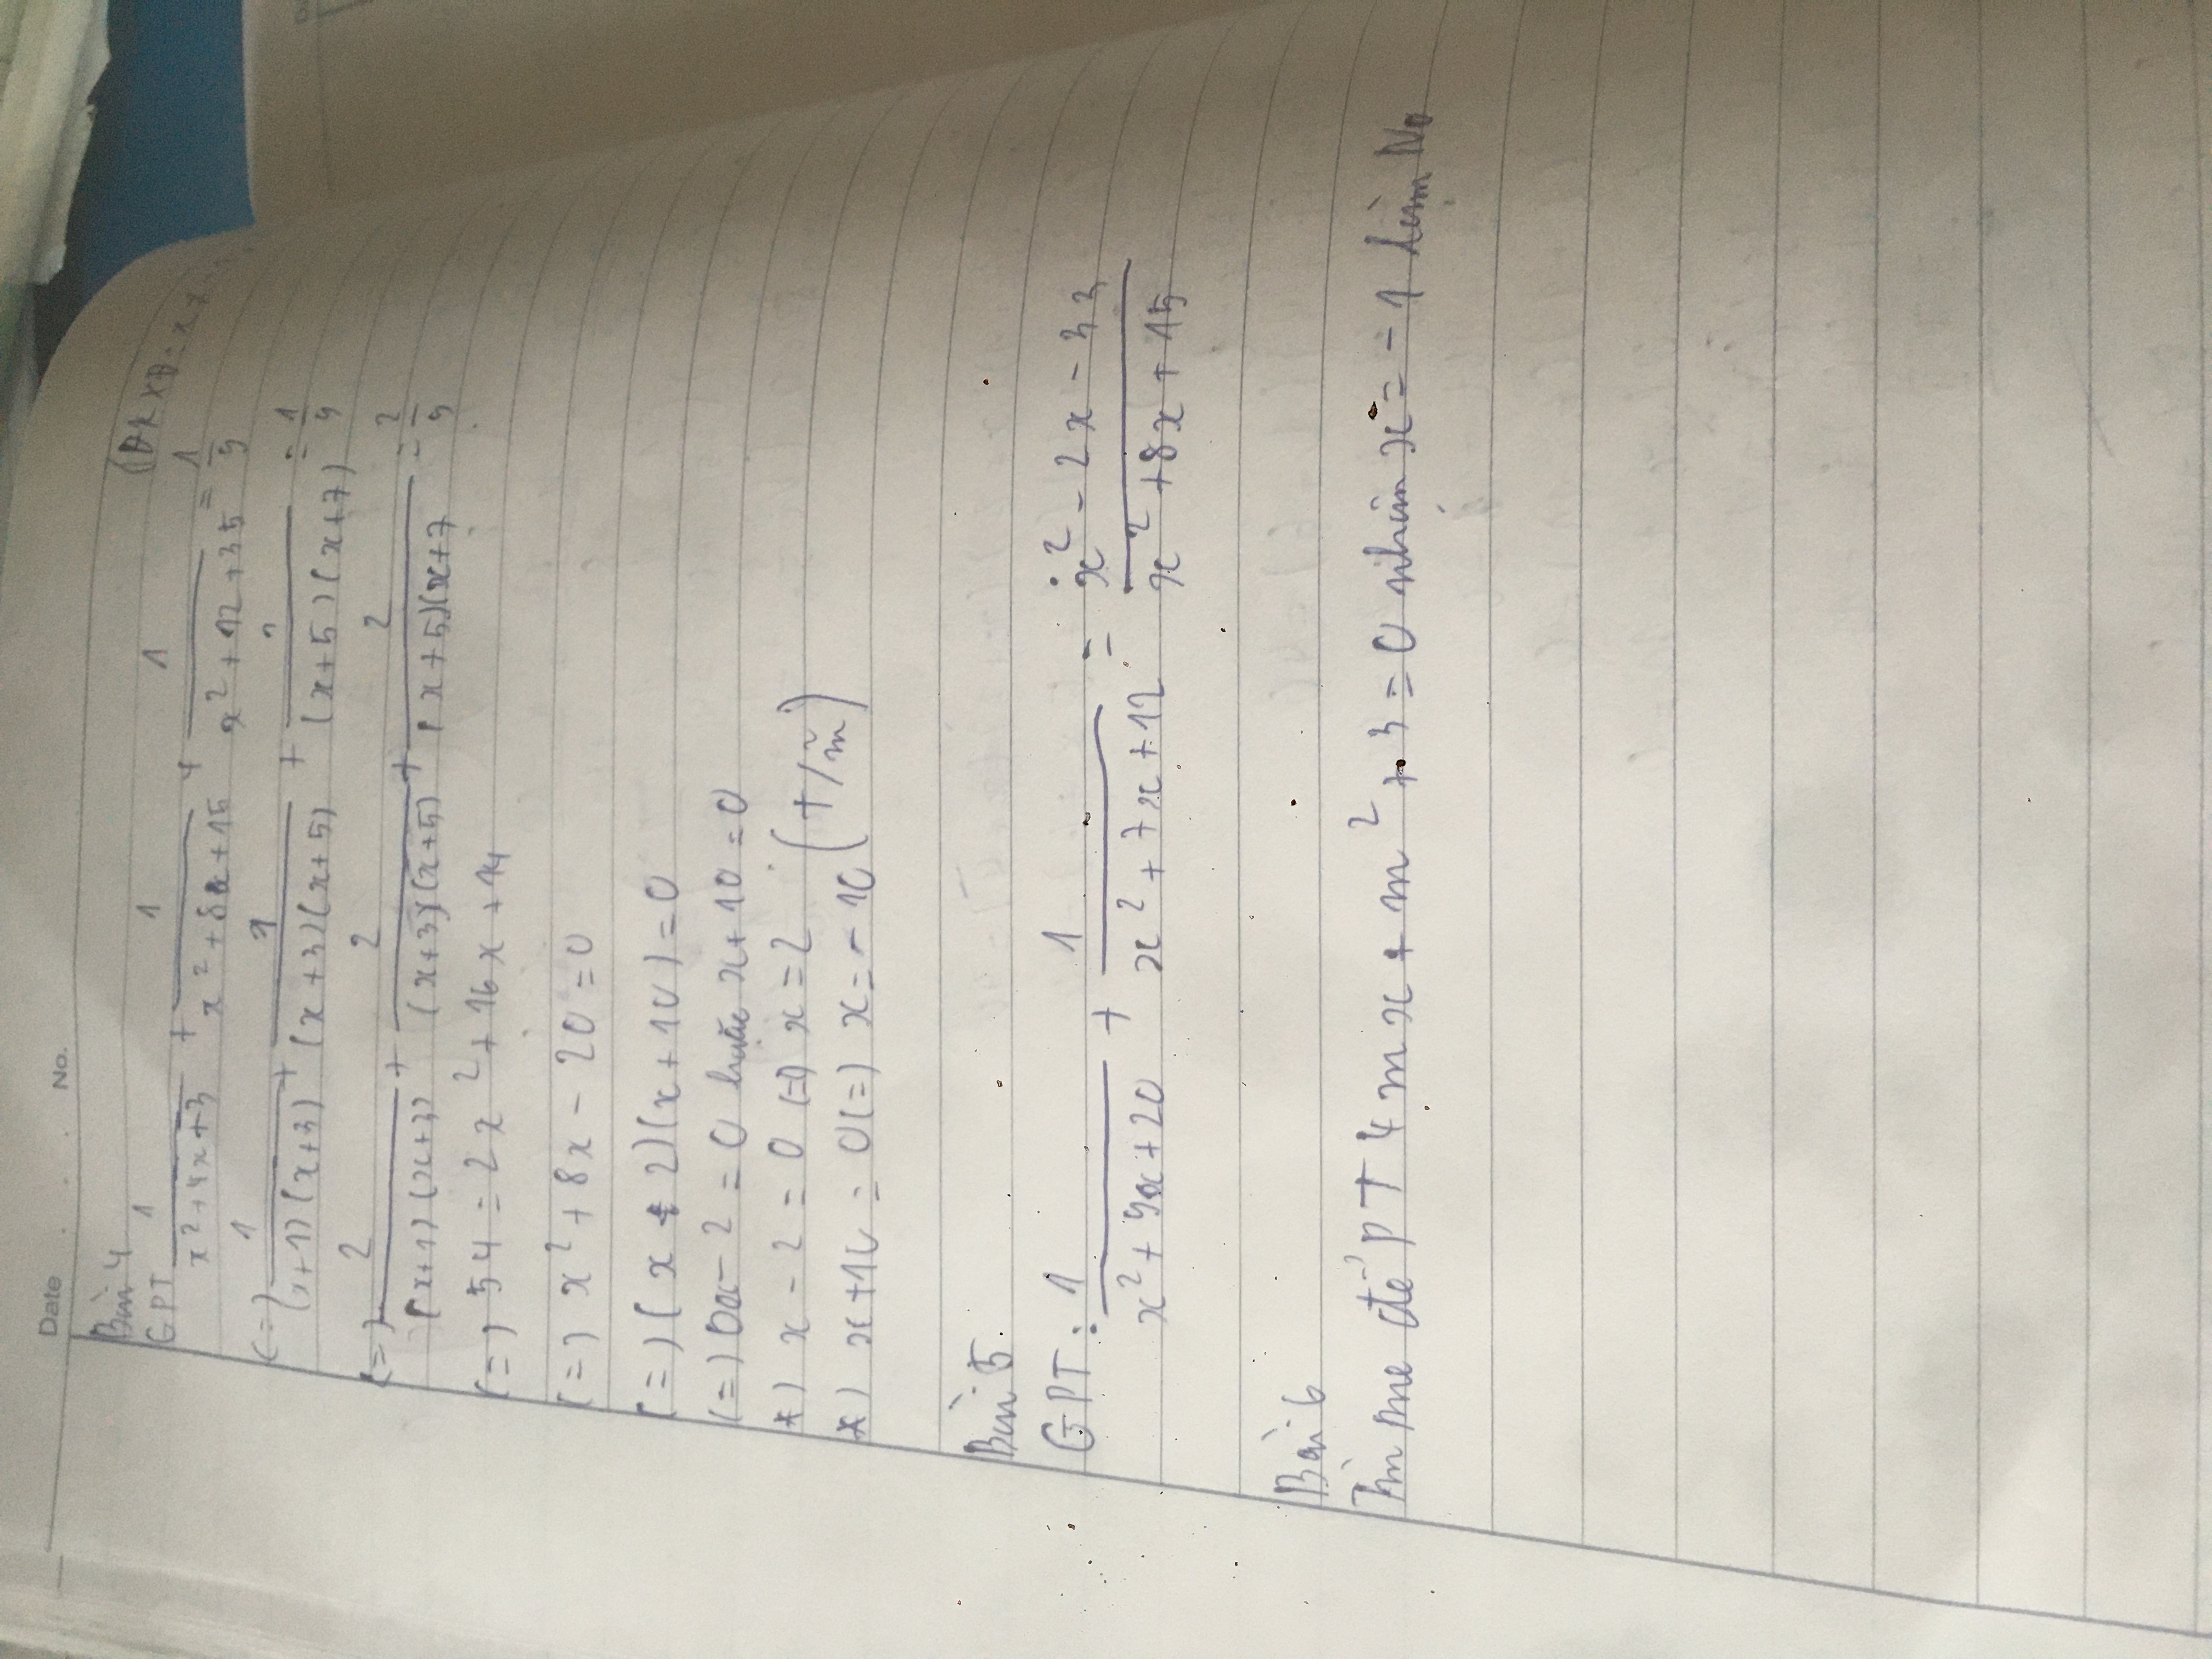 Date No.
Bài 4 (ĐKXĐ: x ≠
GPT 1/(x²+4x+3) + 1/(x²+8x+15) + 1/(x²+12+35) = 1/9
(=) 1/((x+1)(x+3)) + 1/((x+3)(x+5)) + 1/((x+5)(x+7)) = 1/9
(=) 2/((x+1)(x+3)) + 2/((x+3)(x+5)) + 2/((x+5)(x+7 = 2/9
(=) 54 = 2x²+16x+14
(=) x²+8x-20=0
(=) (x-2)(x+10)=0
(=) x-2=0 hoặc x+10=0
*) x-2=0 (=) x=2
*) x+10=0 (=) x=-10 (T/m)
Bài 5
GPT: 1/(x²+9x+20) + 1/(x²+7x+12) = (x²-2x-33)/(x²+8x+15)
Bài 6
Tìm m để PT 4mx+m²+3=0 nhận x=-1 làm No